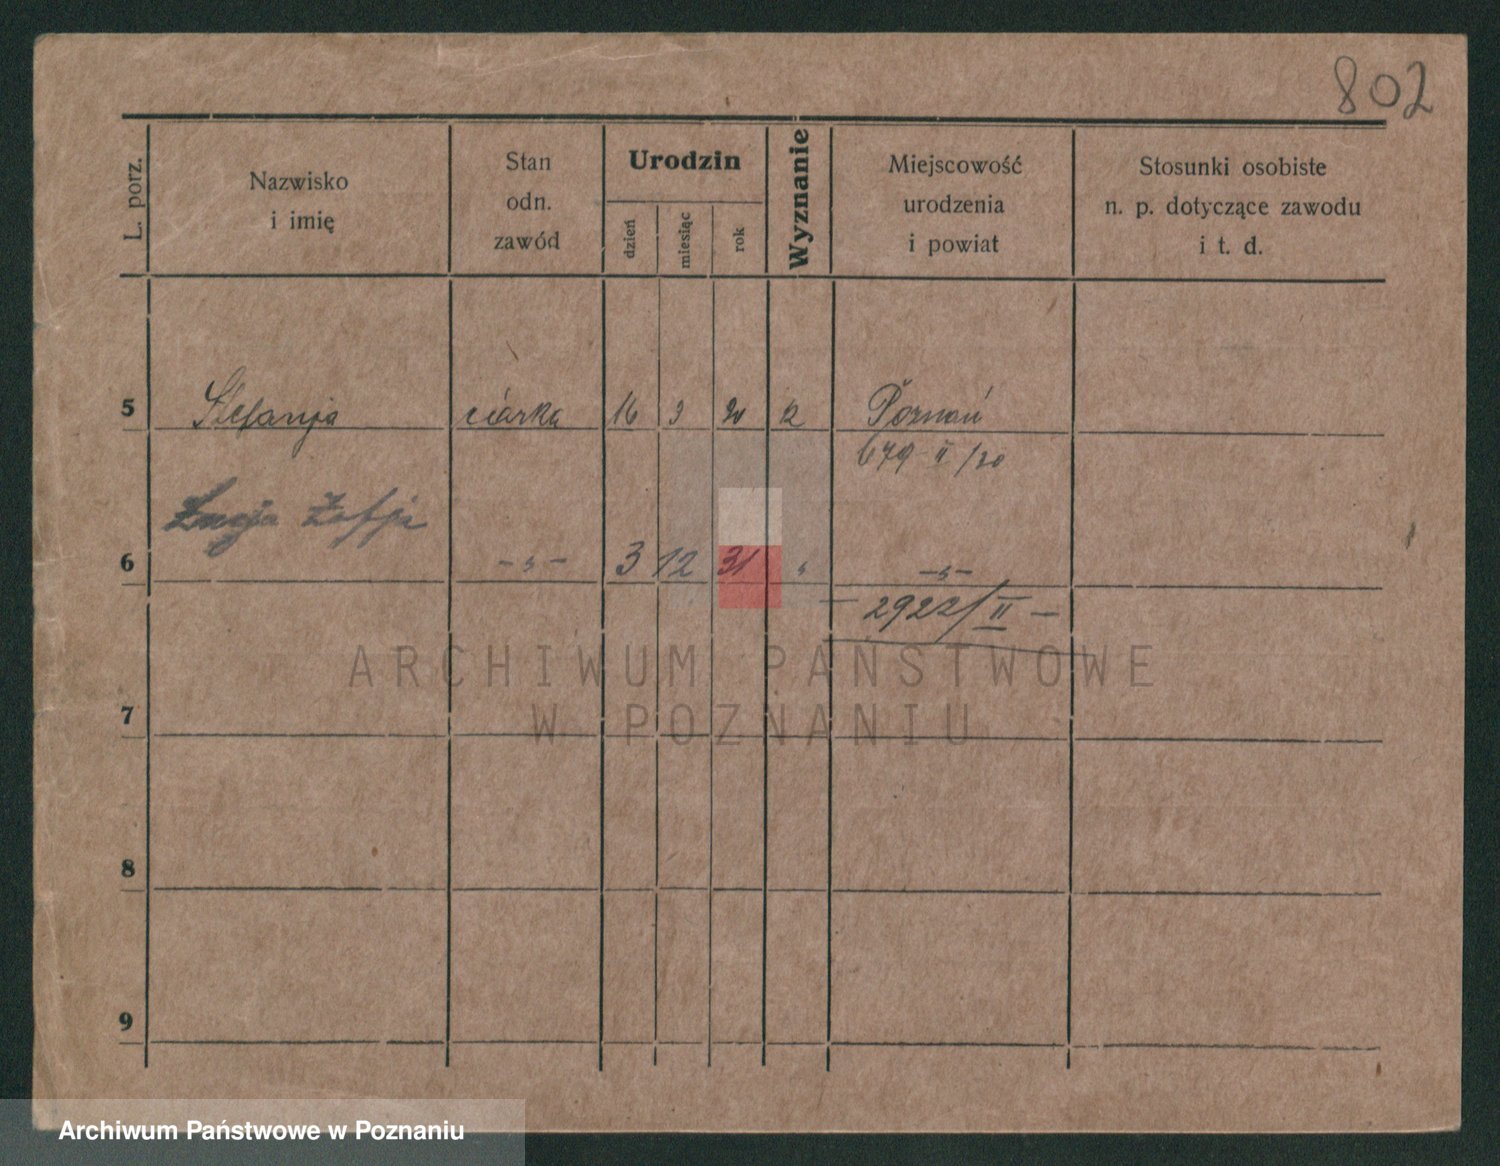 802
L. porz.
Nazwisko
i imię
Stan
odn.
zawód
Urodzin
dzień
miesiąc
rok
Wyznanie
Miejscowość
urodzenia
i powiat
Stosunki osobiste
n. p. dotyczące zawodu
i t. d.
5 Stefanja córka 16 3 20 Poznań
679 II /20
Łucja Zofja
6 -〃- 3 12 31 〃 -〃-
— 2922/II —
ARCHIWUM PAŃSTWOWE
W POZNANIU
7
8
9
Archiwum Państwowe w Poznaniu